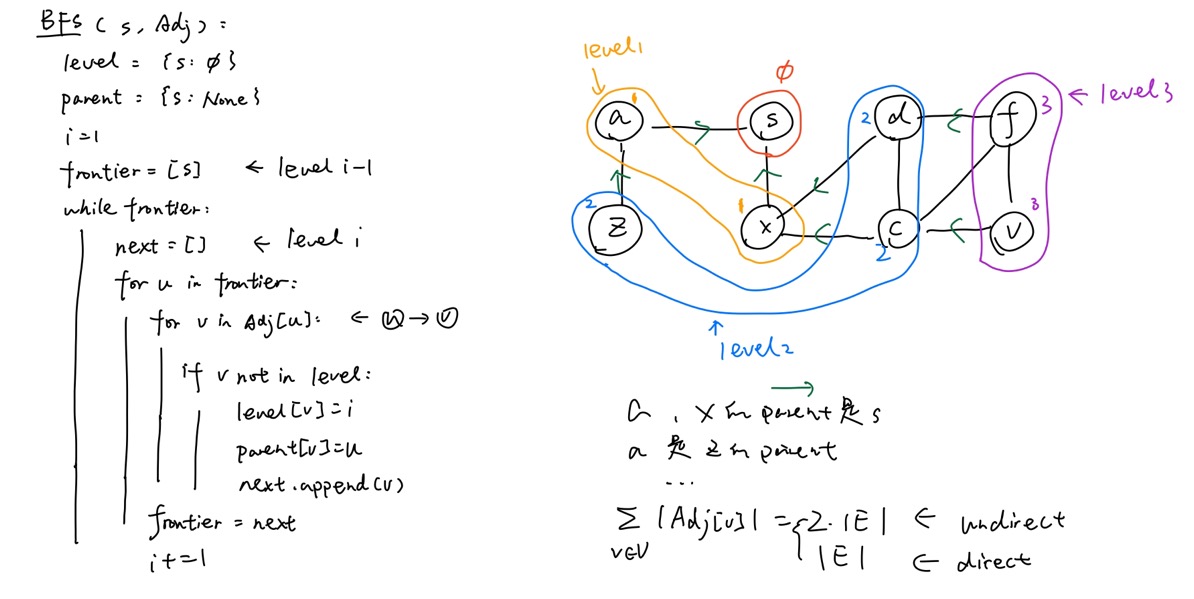 BFS (s, Adj):
level = {s: ∅}
parent = {s: None}
i=1
frontier = [s] ← level i-1
while frontier:
next = [] ← level i
for u in frontier:
for v in Adj[u]: ← u → v
if v not in level:
level[v]=i
parent[v]=u
next.append(v)
frontier = next
i+=1
level1
∅
a 1
s
2 d
f 3
← level3
2 z
1 x
c 2
v 3
level2
a, x 的 parent 是 s
a 是 z 的 parent
...
∑ |Adj[v]| = { 2·|E| ← undirect
v∈V |E| ← direct